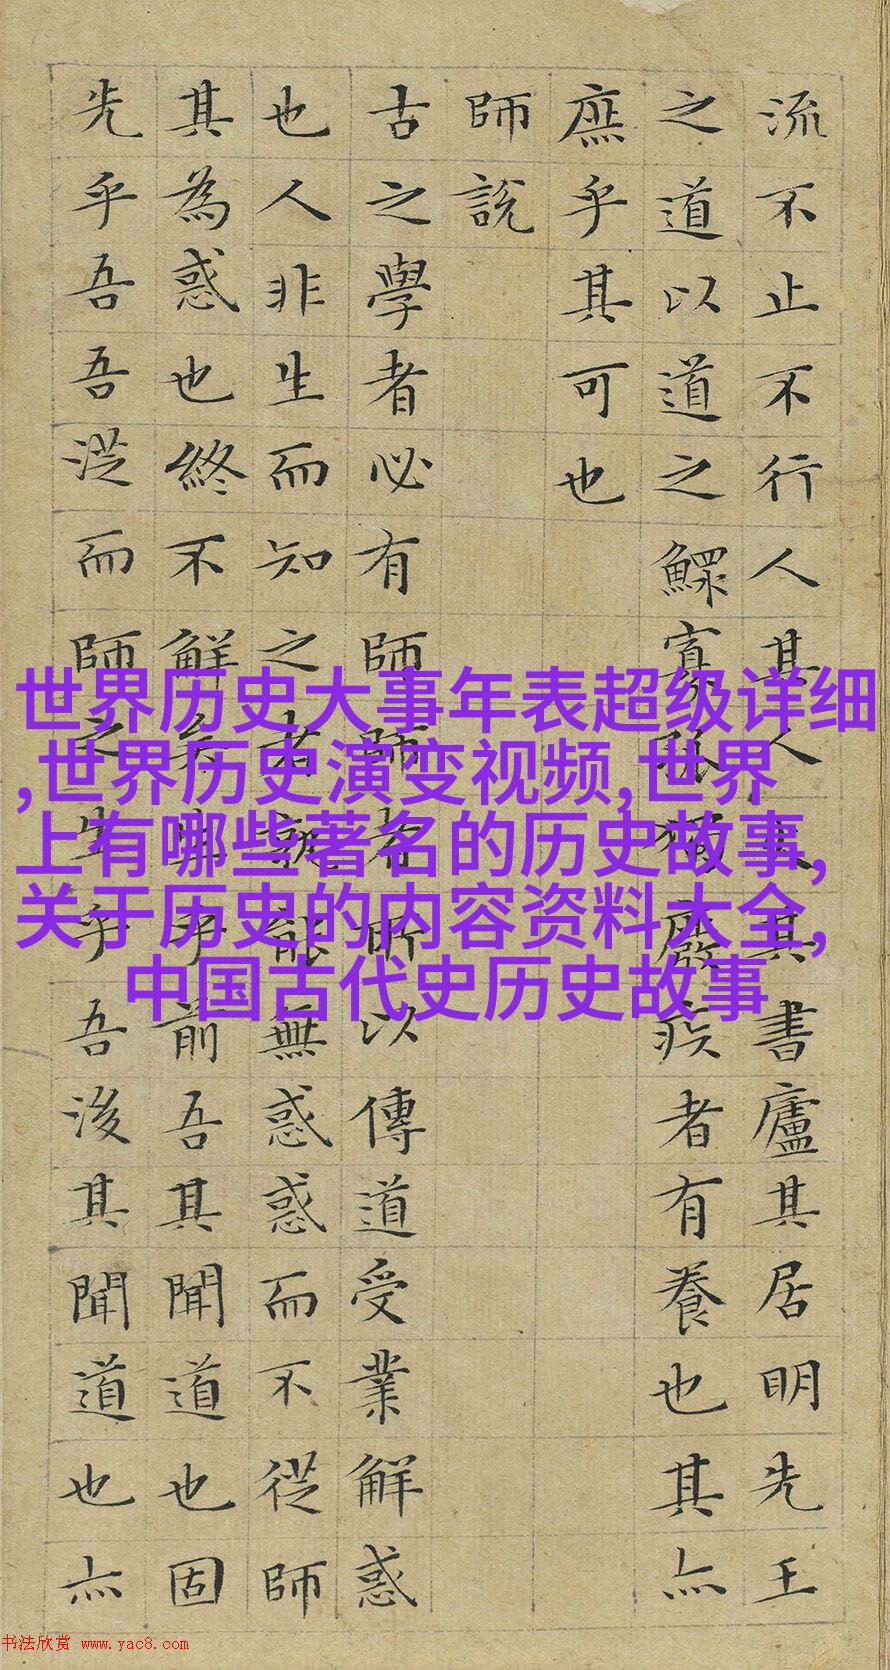 流不止不行人其人火其書廬其居明先王
之道以道之鰥寡孤獨廢疾者有養也其亦
庶乎其可也
師說
古之學者必有師師者所以傳道受業解惑
也人非生而知之者孰能無惑惑而不從師
其為惑也終不解矣生乎前吾其聞道也固
先乎吾吾從而師之生乎吾後其聞道也亦
世界历史大事年表超级详细
,世界历史演变视频,世界
上有哪些著名的历史故事,
关于历史的内容资料大全,
中国古代史历史故事
书法欣赏 www.yac8.com